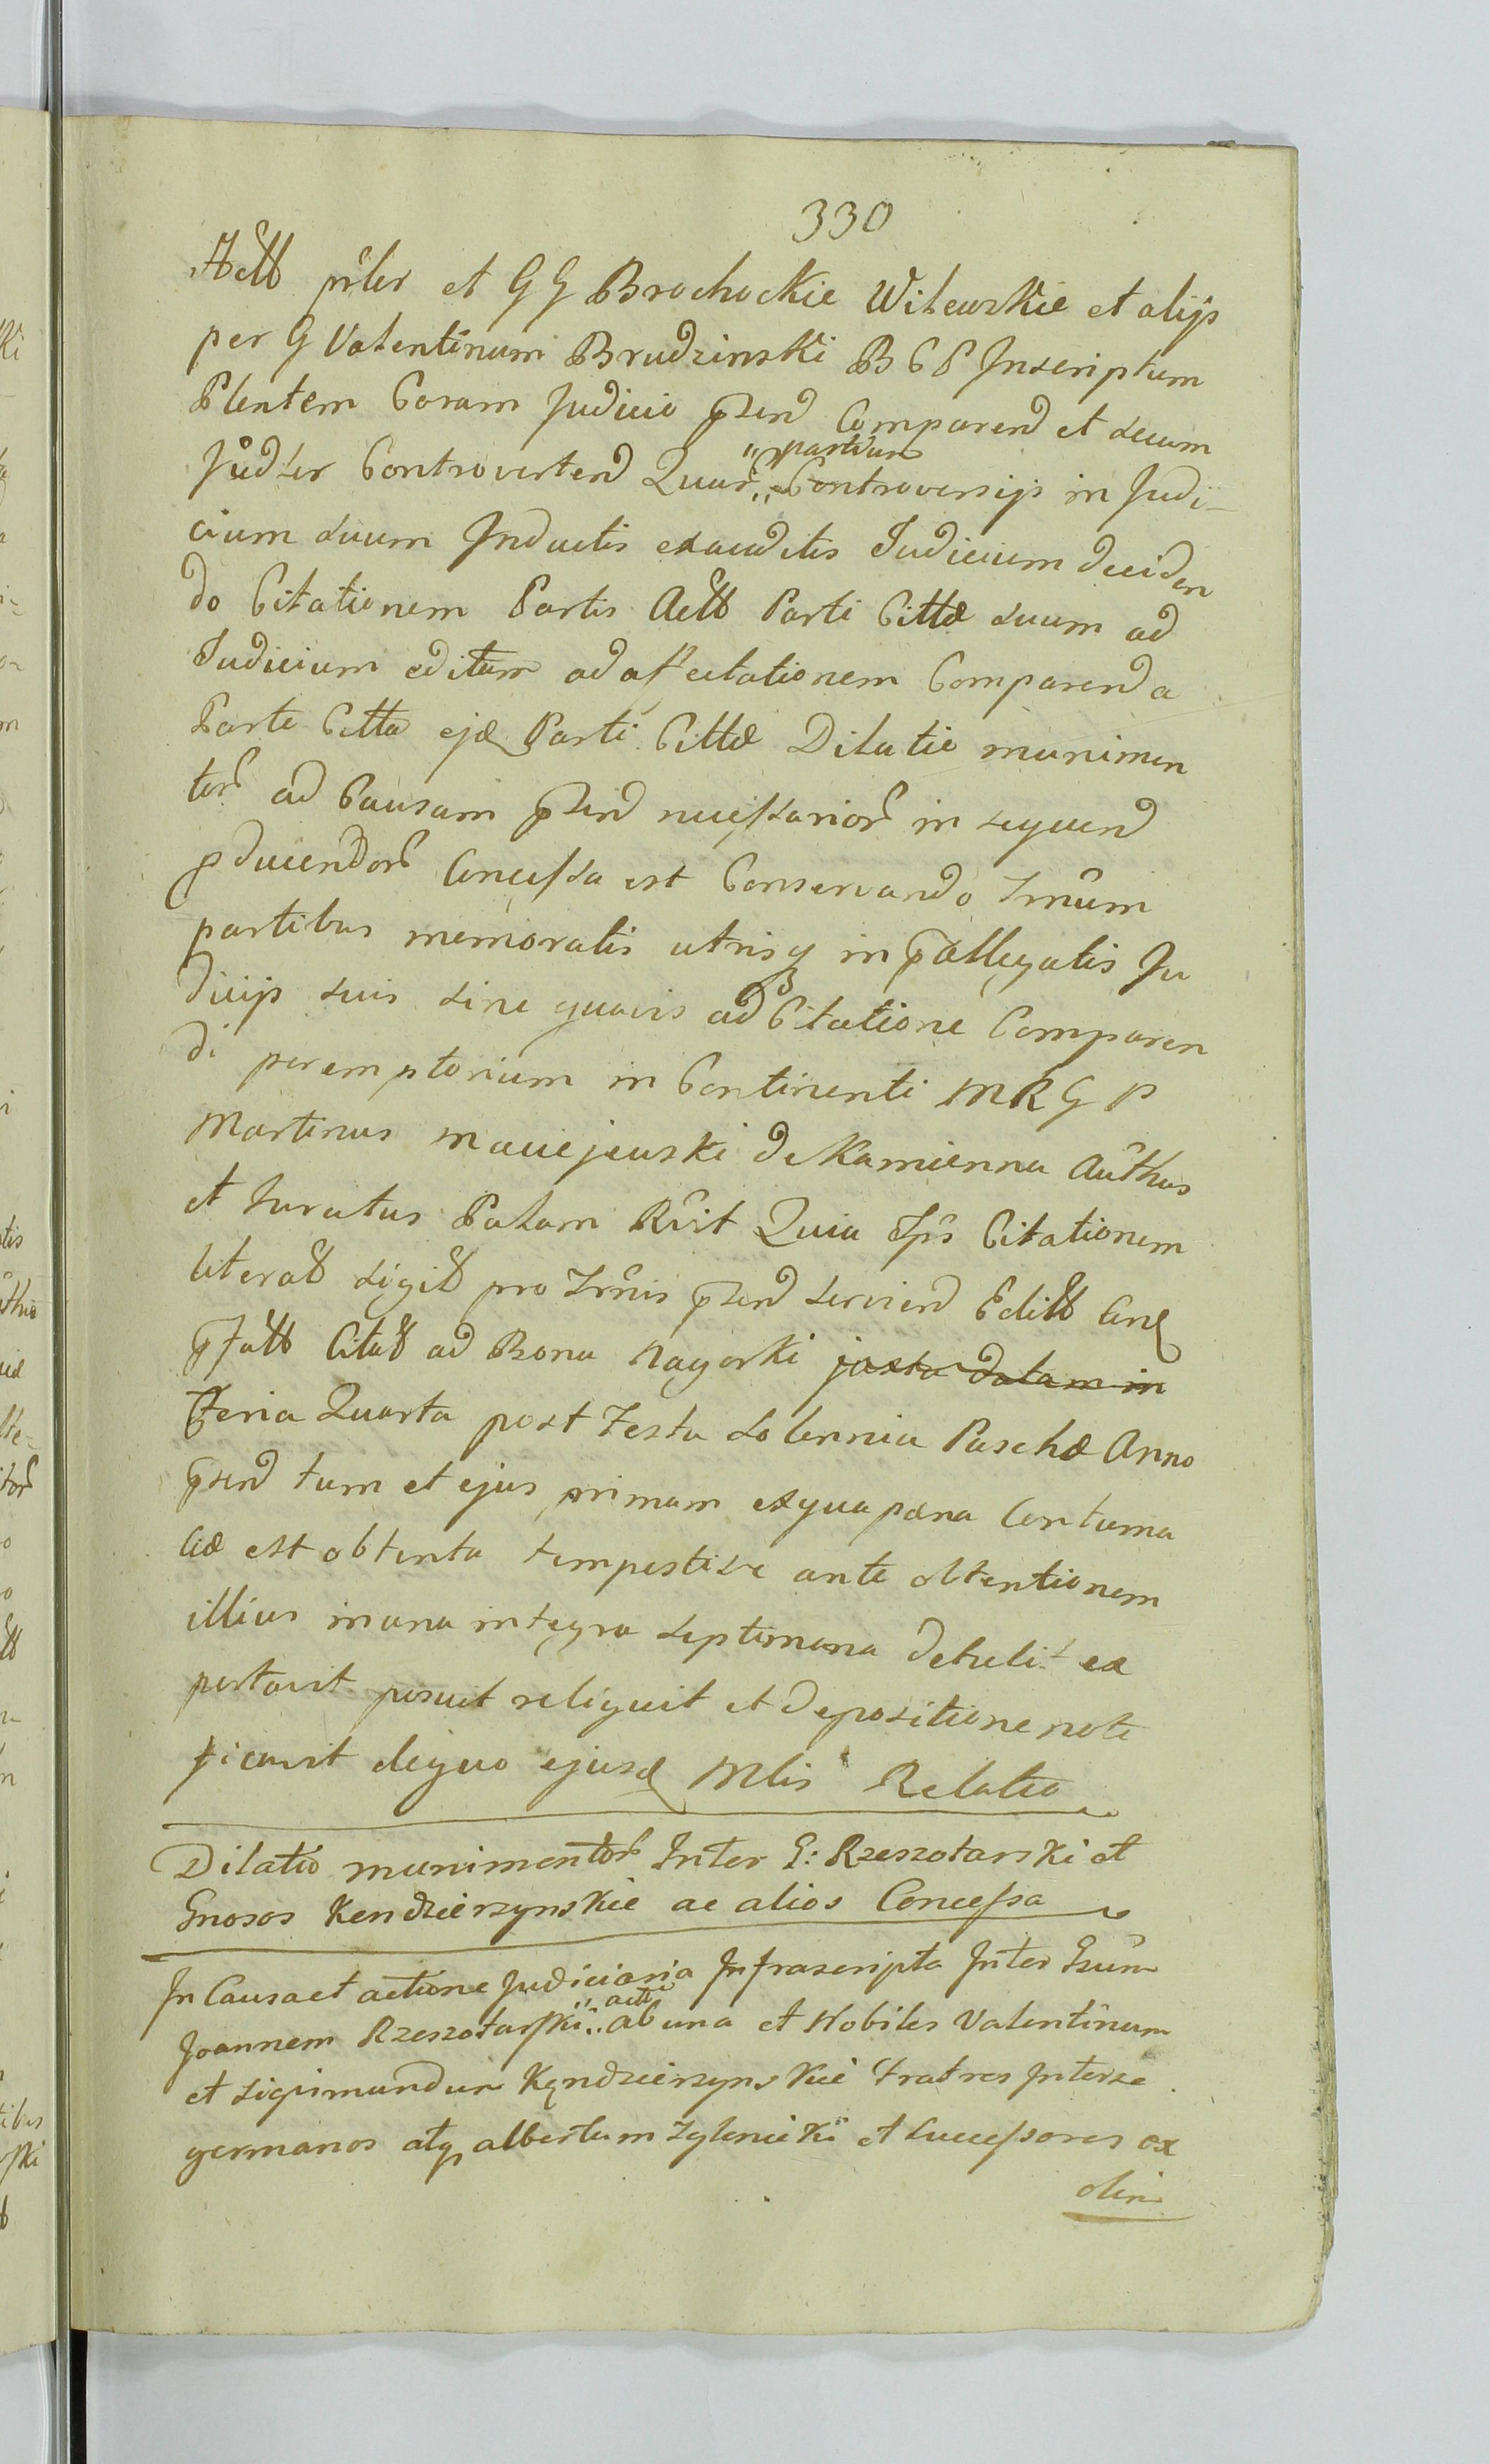 330
Actt prlr et G G Brochockie Witewskie et alijs
per G Valentinum Brudzinski B C P Inscriptum
Plentem Coram Judicio pnd Comparend et secum
Judlr Controvertend Quar partium Controversijs in Judi-
cium suum Inductis exauditis Judicium deciden
do Citationem Partis Actt Parti Cittæ suum ad
Judicium editam ad affectationem Comparend a
Parte Citta ejd Parti Cittæ Dilatio munimen
tor ad Causam psend necessarior in sequend
pducendor Concessa est Conservando Trnum
partibus memoratis utrisq in pallegatis Ju
dicijs suis sine quavis ad Citatione Comparen
di peremptorium in Continenti M R G P
Martinus Maciejewski de Kamienna Authus
et Juratus Palam Rvit Quia Ips Citationem
literatt sigill pro Trnis psend serviend Editt Cnq
pfatt Citatt ad Bona Nagorki juxta datam in
Feria Quarta post Festa Solennia Paschæ Anno
psend tum et ejus primam exqua pæna Contuma
ciæ est obtenta tempestive ante obtentionem
illius in una integra septimana detulit ex
portavit posuit reliquit et depositione noti
ficavit de quo ejusd Mlis Relatio
Dilatio munimentor Inter G: Rzeszotarski et
Gnosos Kendzierzynskie ac alios Concessa
In Causa et actione Judiciaria Infrascripta Inter Gsum
Joannem Rzeszotarski acte ab una et Nobiles Valentinum
et Sigismundum Kędzierzynskie Fratres Inter se
germanos atq albertum Zglenicki et Successores ox
olim